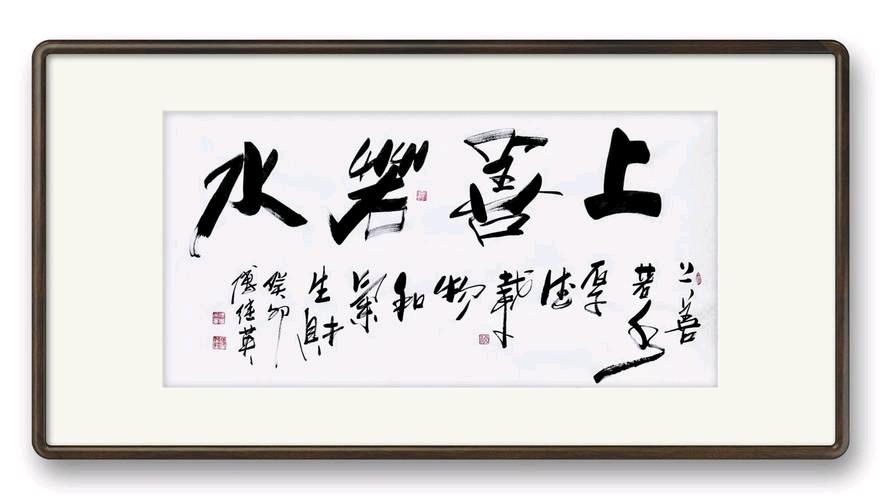 上善若水
上善
若水
厚
德
載
物
和
氣
生財
癸卯